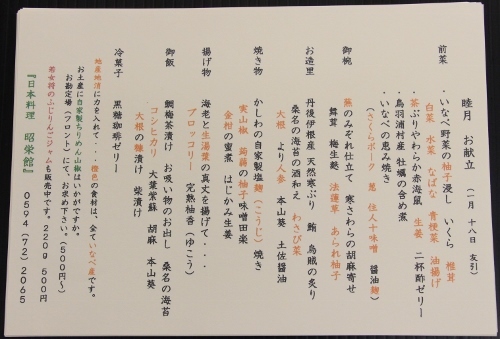 睦月 お献立 (一月 十八日 友引)
前菜
・いなべ野菜の柚子浸し いくら 椎茸
白菜 水菜 なばな 青梗菜 油揚げ
・茶ぶりやわらか赤海鼠 生姜 二杯酢ゼリー
・鳥羽浦村産 牡蠣の含め煮
・いなべの恵み焼き
(さくらポーク 葱 住人十味噌 醤油麹)
御椀
蕪のみぞれ仕立て 寒さわらの胡麻寄せ
舞茸 梅生麩 法蓮草 あられ柚子
お造里
丹後伊根産 天然寒ぶり 鮪 烏賊の炙り
桑名の海苔の酒和え わさび菜
大根 より人参 本山葵 土佐醤油
焼き物
かしわの自家製塩麹(こうじ)焼き
実山椒 蒟蒻の柚子味噌田楽
金柑の蜜煮 はじかみ生姜
揚げ物
海老と生湯葉の真丈を揚げて・・・
ブロッコリー 完熟柚香(ゆこう)
御飯
鯛梅茶漬け お吸い物のお出し 桑名の海苔
コシヒカリ 大葉紫蘇 胡麻 本山葵
大根の糠漬け 柴漬け
冷菓子
黒糖珈琲ゼリー
地産地消に力を入れて・・・橙色の食材は、全ていなべ産です。
お土産に自家製ちりめん山椒はいかがですか。
お勘定場(フロント)にて、お求め下さい。(500円〜)
若女将のふじりんごジャムも販売中です。220g 500円
『日本料理 昭栄館』 0594(72)2065